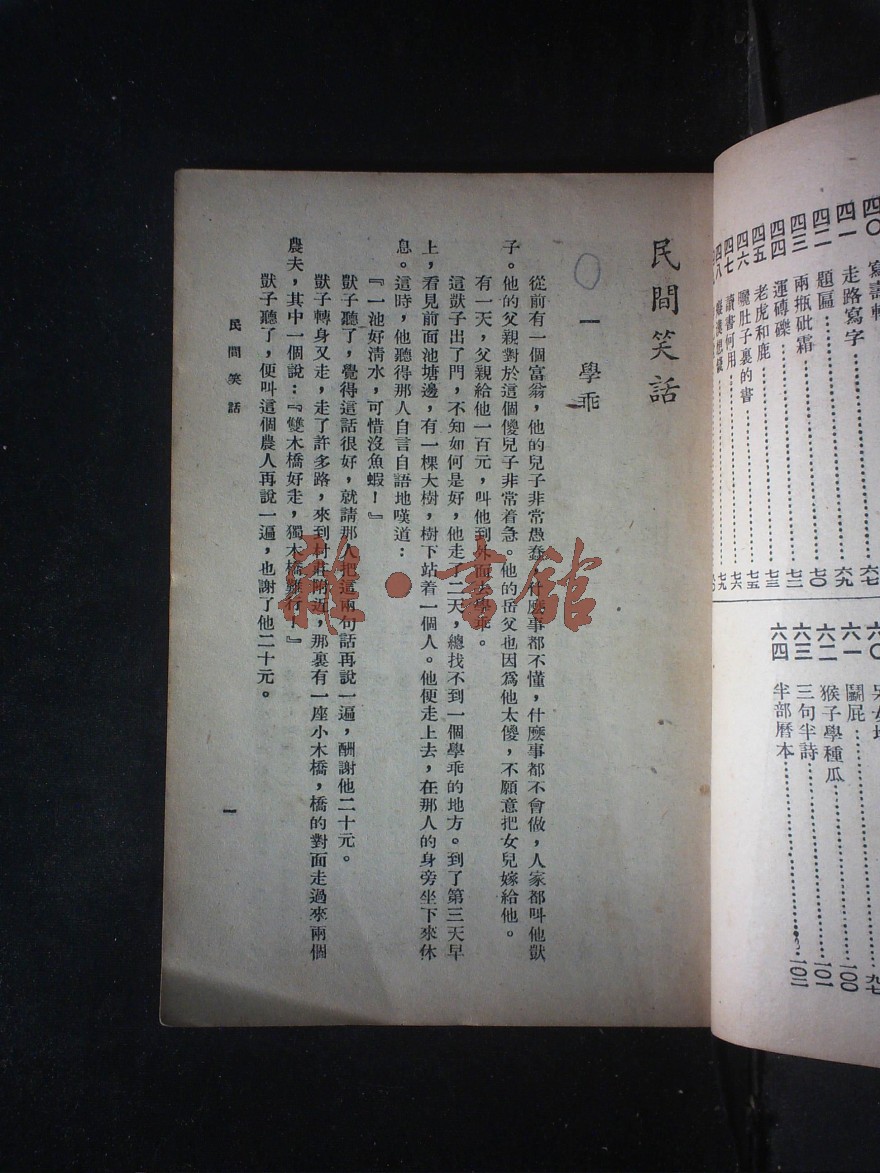 四〇
四一 走路寫字……六九
四二 題匾……七〇
四三 兩瓶砒霜……七二
四四 運磚礫……七三
四五 老虎和鹿……七五
四六 曬肚子裏的書……七六
四七 讀書何用……七九
六〇
六一 鬭屁……一〇〇
六二 猴子學種瓜……一〇一
六三 三句半詩……一〇二
六四 半部曆本……
民間笑話
一 學乖
從前有一個富翁，他的兒子非常愚蠢，什麼事都不懂，什麼事都不會做，人家都叫他獃
子。他的父親對於這個傻兒子非常着急。他的岳父也因爲他太傻，不願意把女兒嫁給他。
有一天，父親給他一百元，叫他到外面去學乖。
這獃子出了門，不知如何是好，他走了二天，總找不到一個學乖的地方。到了第三天早
上，看見前面池塘邊，有一棵大樹，樹下站着一個人。他便走上去，在那人的身旁坐下來休
息。這時，他聽得那人自言自語地嘆道：
『一池好清水，可惜沒魚蝦！』
獃子聽了，覺得這話很好，就請那人把這兩句話再說一遍，酬謝他二十元。
獃子轉身又走，走了許多路，來到村莊附近，那裏有一座小木橋，橋的對面走過來兩個
農夫，其中一個說：『雙木橋好走，獨木橋難行！』
獃子聽了，便叫這個農人再說一遍，也謝了他二十元。
民間笑話
一
雜·書館